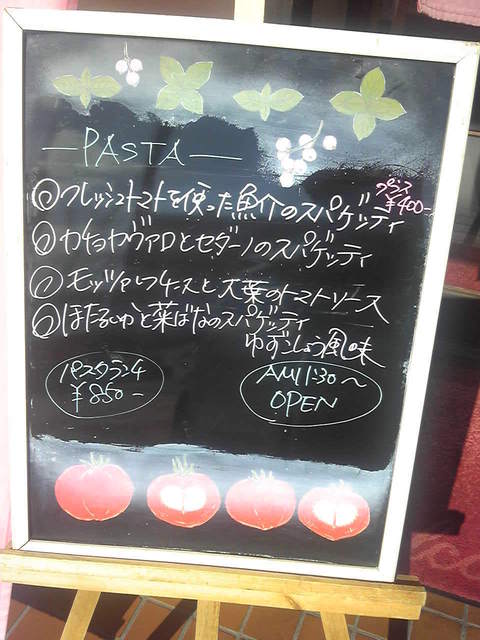 —PASTA—
◎ フレッシュトマトを使った魚介のスパゲッティ
プラス ¥400-
◎ カチョカヴァロとセダーノのスパゲッティ
◎ モッツァレラチーズと大葉のトマトソース
◎ ほたるいかと菜ばなのスパゲッティ
ゆずこしょう風味
パスタランチ
¥850-
AM11:30〜
OPEN